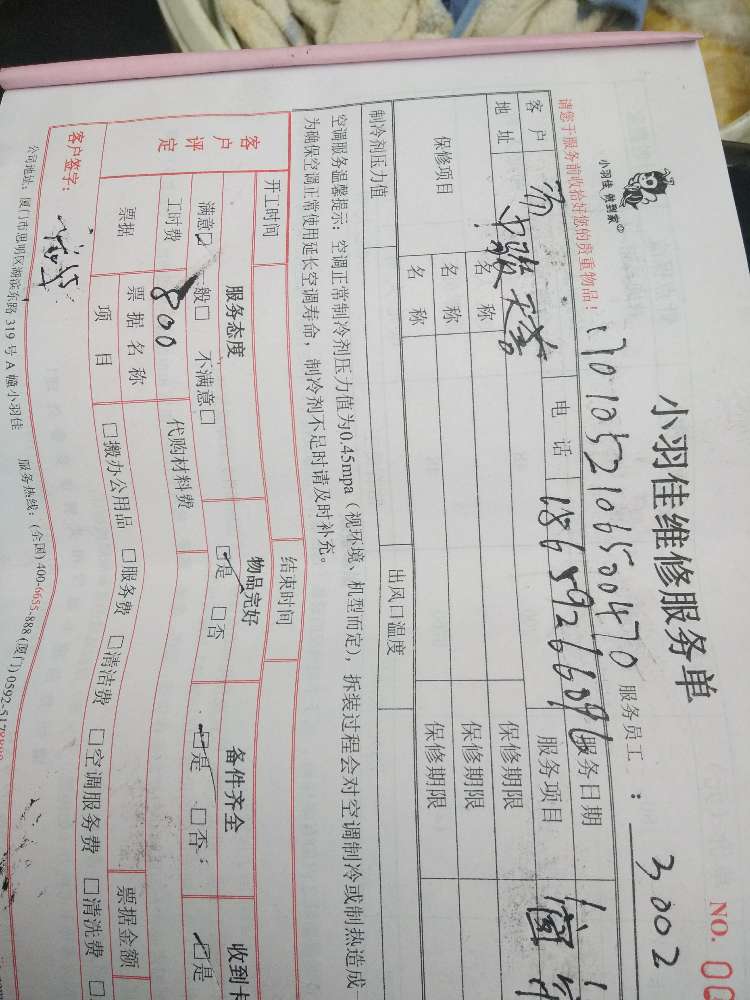 小羽佳维修服务单
NO. 00
小羽佳 做到家
1701052106500470
服务员工: 3002
请您于服务前收拾好您的贵重物品!
服务日期
客户 电话 服务项目
地址
保修项目 名称 保修期限
名称 保修期限
名称 保修期限
制冷剂压力值 出风口温度
空调服务温馨提示:空调正常制冷剂压力值为0.45mpa(视环境、机型而定),拆装过程会对空调制冷或制热造成
为确保空调正常使用延长空调寿命,制冷剂不足时请及时补充。
开工时间 结束时间
客户评定 服务态度 物品完好 备件齐全 收到卡
满意□ 一般□ 不满意□ □是 □否 □是 □否 □是
工时费 800 代购材料费
票据 票据名称 票据金额
项目 □搬办公用品 □服务费 □清洁费 □空调服务费 □清洗费 □
客户签字:
公司地址:厦门市思明区湖滨东路 319 号 A 幢小羽佳 服务热线:(全国) 400-6655-888 (厦门) 0592-5178